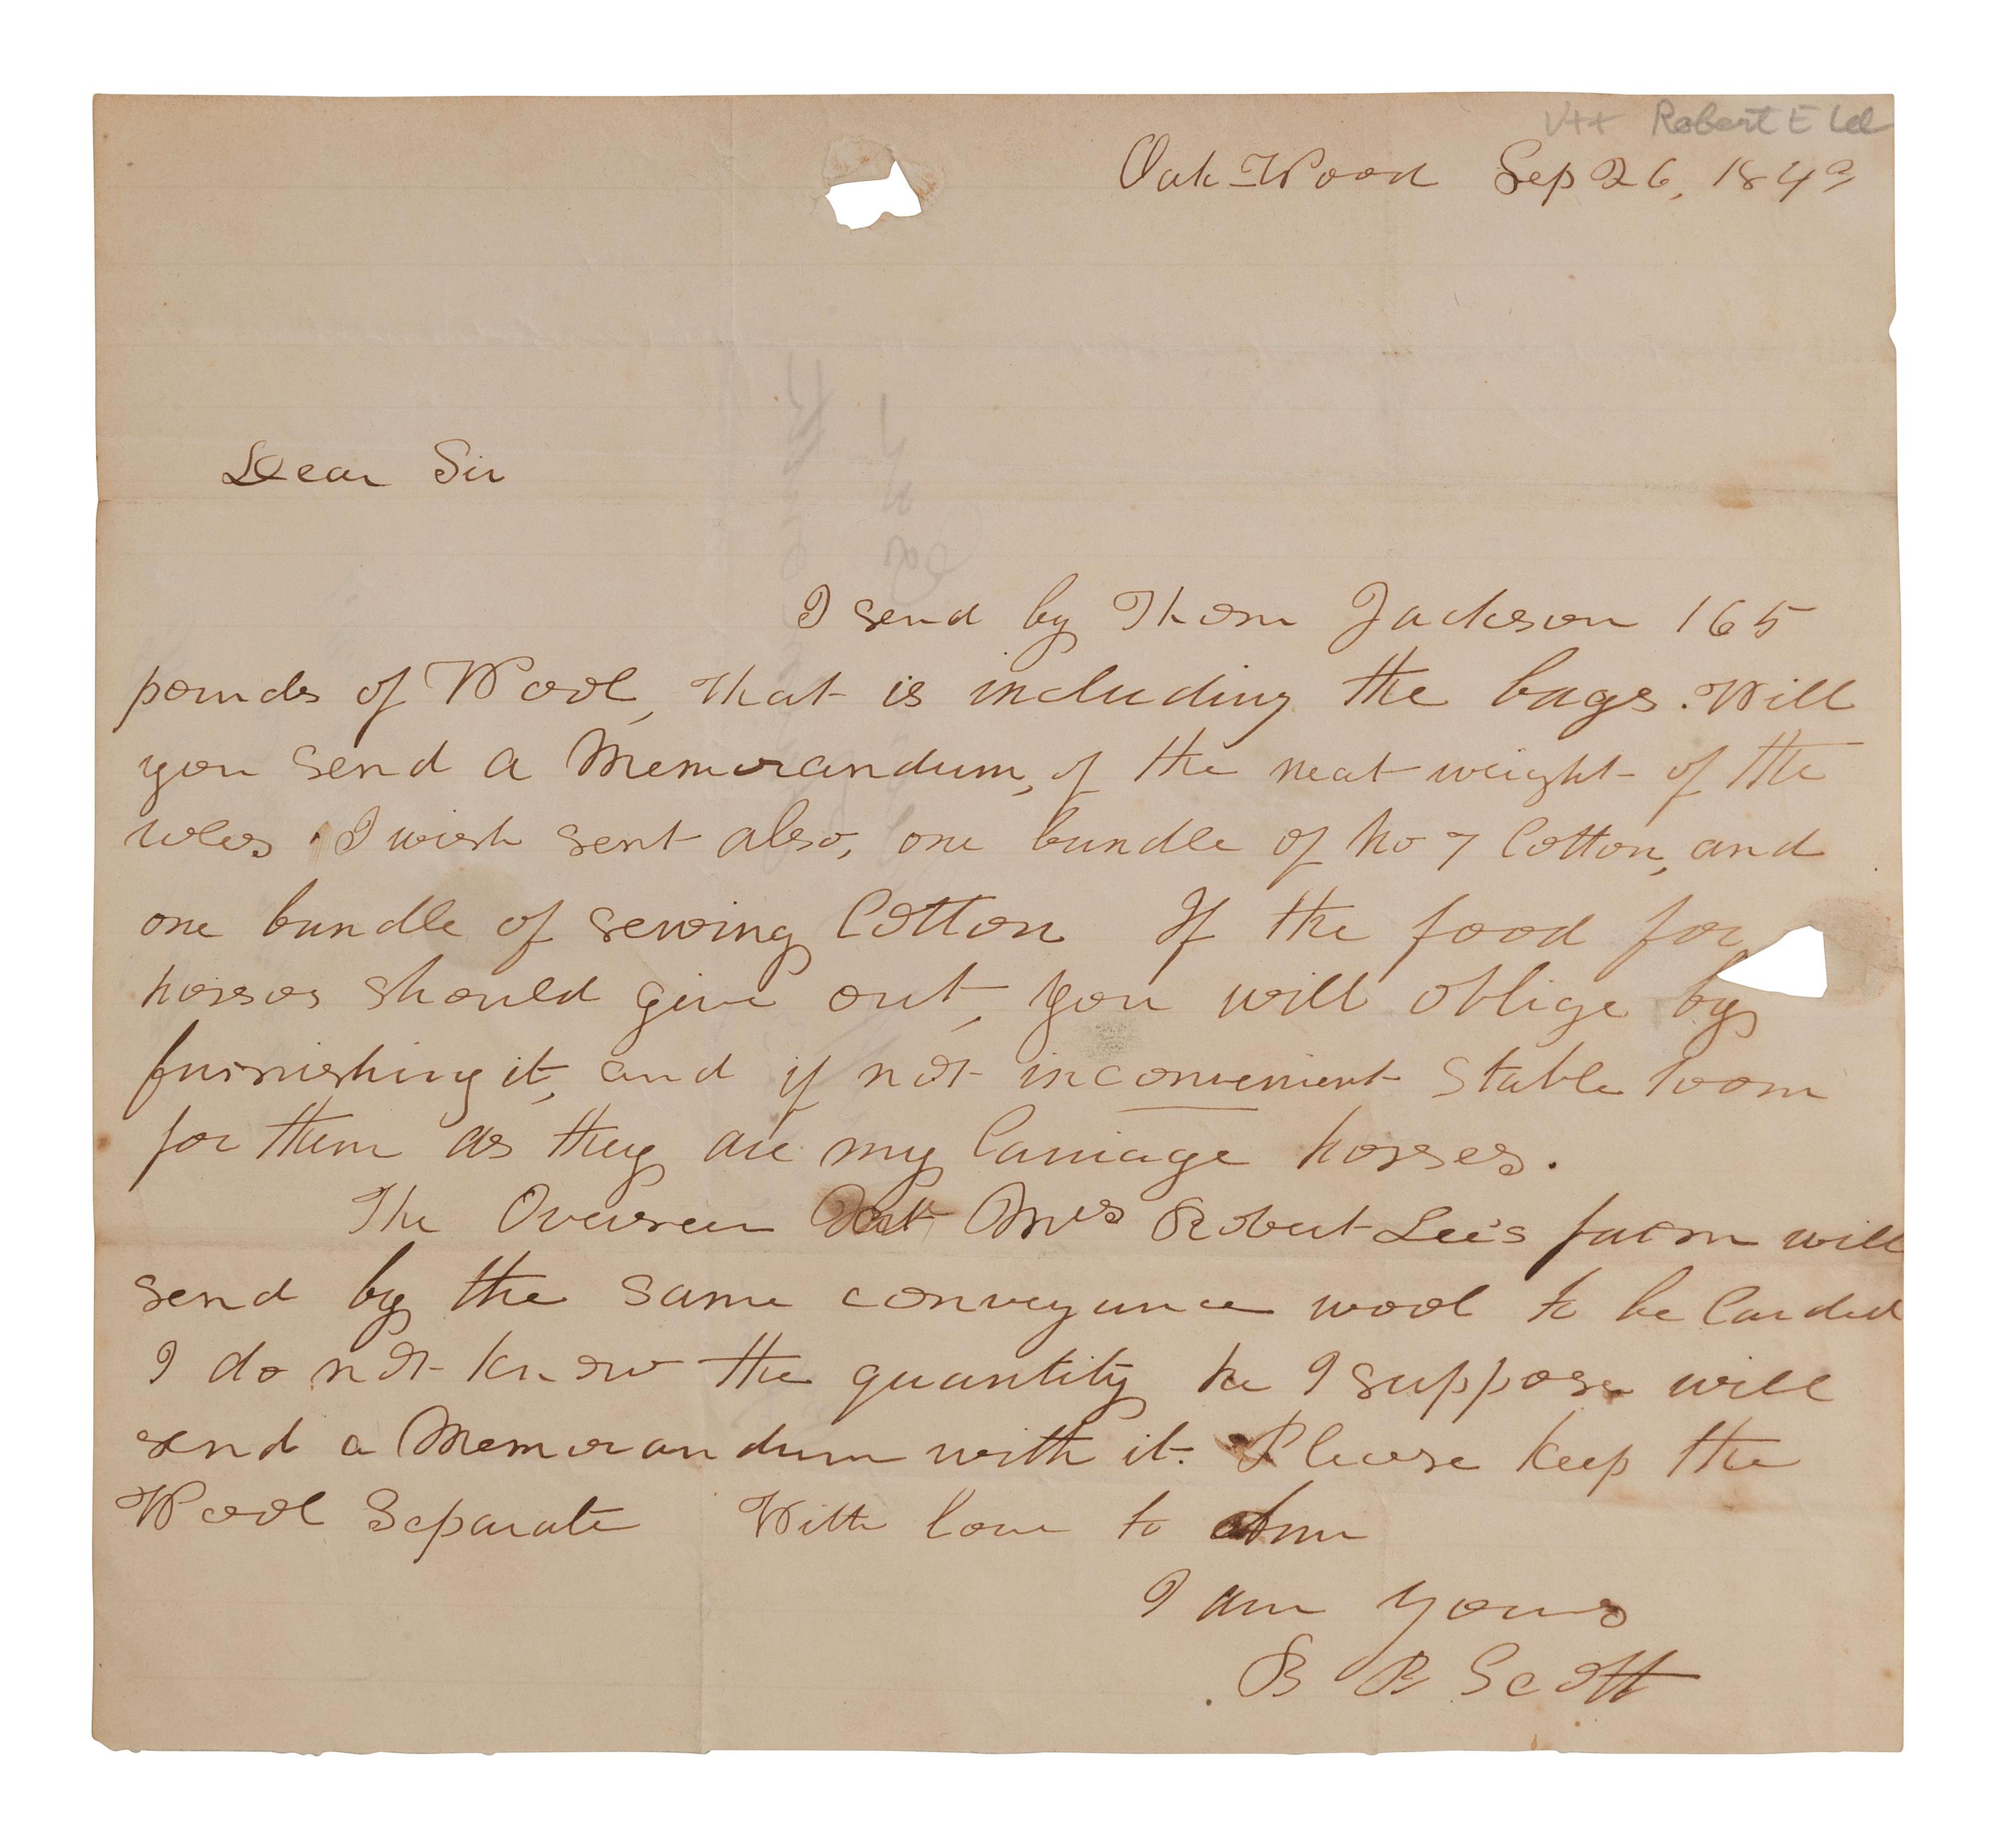 Robert E Lee
Oak-Wood Sep 26, 1849
Dear Sir
I send by Thom Jackson 165
pounds of Wool, that is including the bags. Will
you send a Memorandum, of the neat weight of the
roles. I wish sent also, one bundle of No 7 Cotton, and
one bundle of sewing Cotton If the food for
horses should give out, you will oblige by
furnishing it, and if not inconvenient stable room
for them as they are my Carriage horses.
The Overseer at Mrs Robert Lee's farm will
send by the same conveyance wool to be Carded
I do not know the quantity he I suppose will
send a Memorandum with it. Please keep the
Wool Separate With love to Ann
I am yours
B R Scott